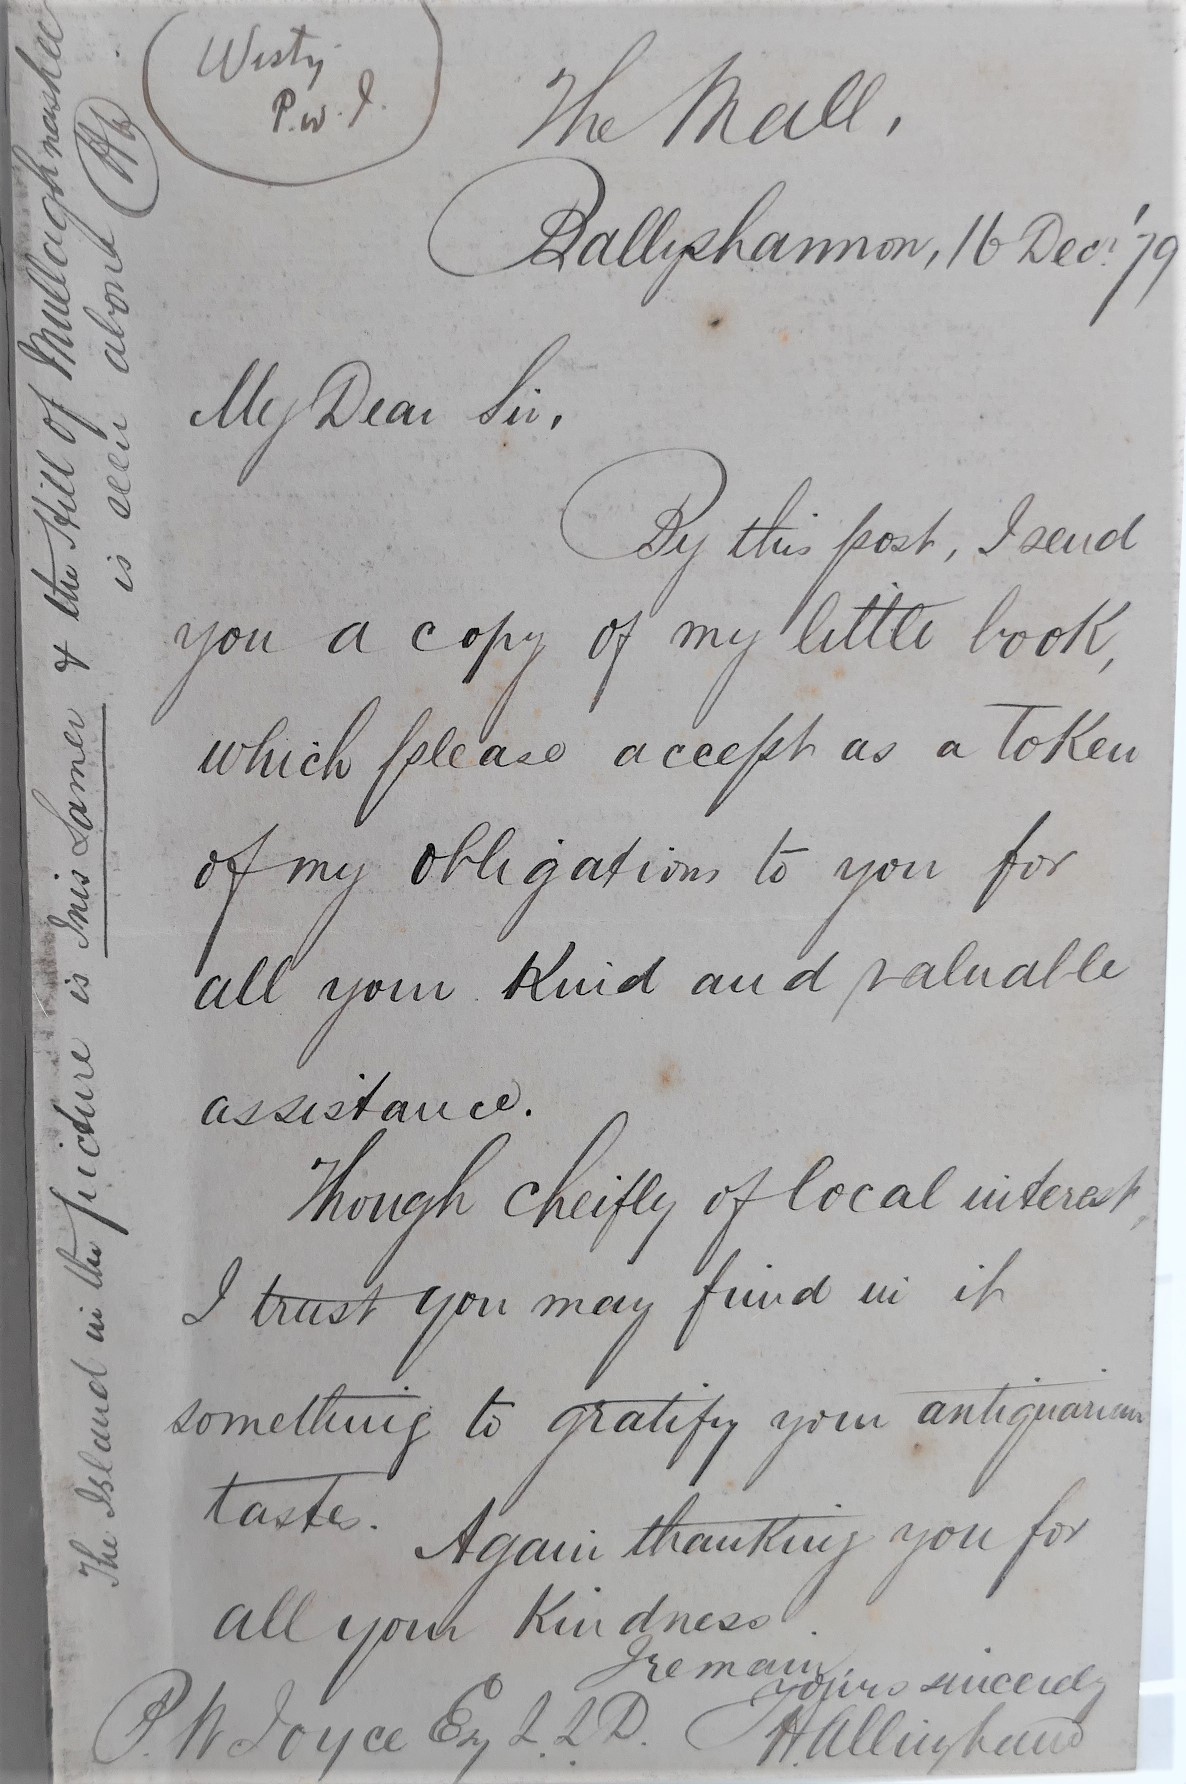 Westy
P.W.J.
The Mall,
Ballyshannon, 16 Decr. '79
My Dear Sir,
By this post, I send
you a copy of my little book,
which please accept as a token
of my obligations to you for
all your kind and valuable
assistance.
Though cheifly of local interest,
I trust you may find in it
something to gratify your antiquarian
taste.
Again thanking you for
all your kindness
I remain
Yours sincerely
H Allingham
P. W Joyce Esq L.L.D.
The Island in the picture is Inis Samer & the Hill of Mullaghnashee
is seen above